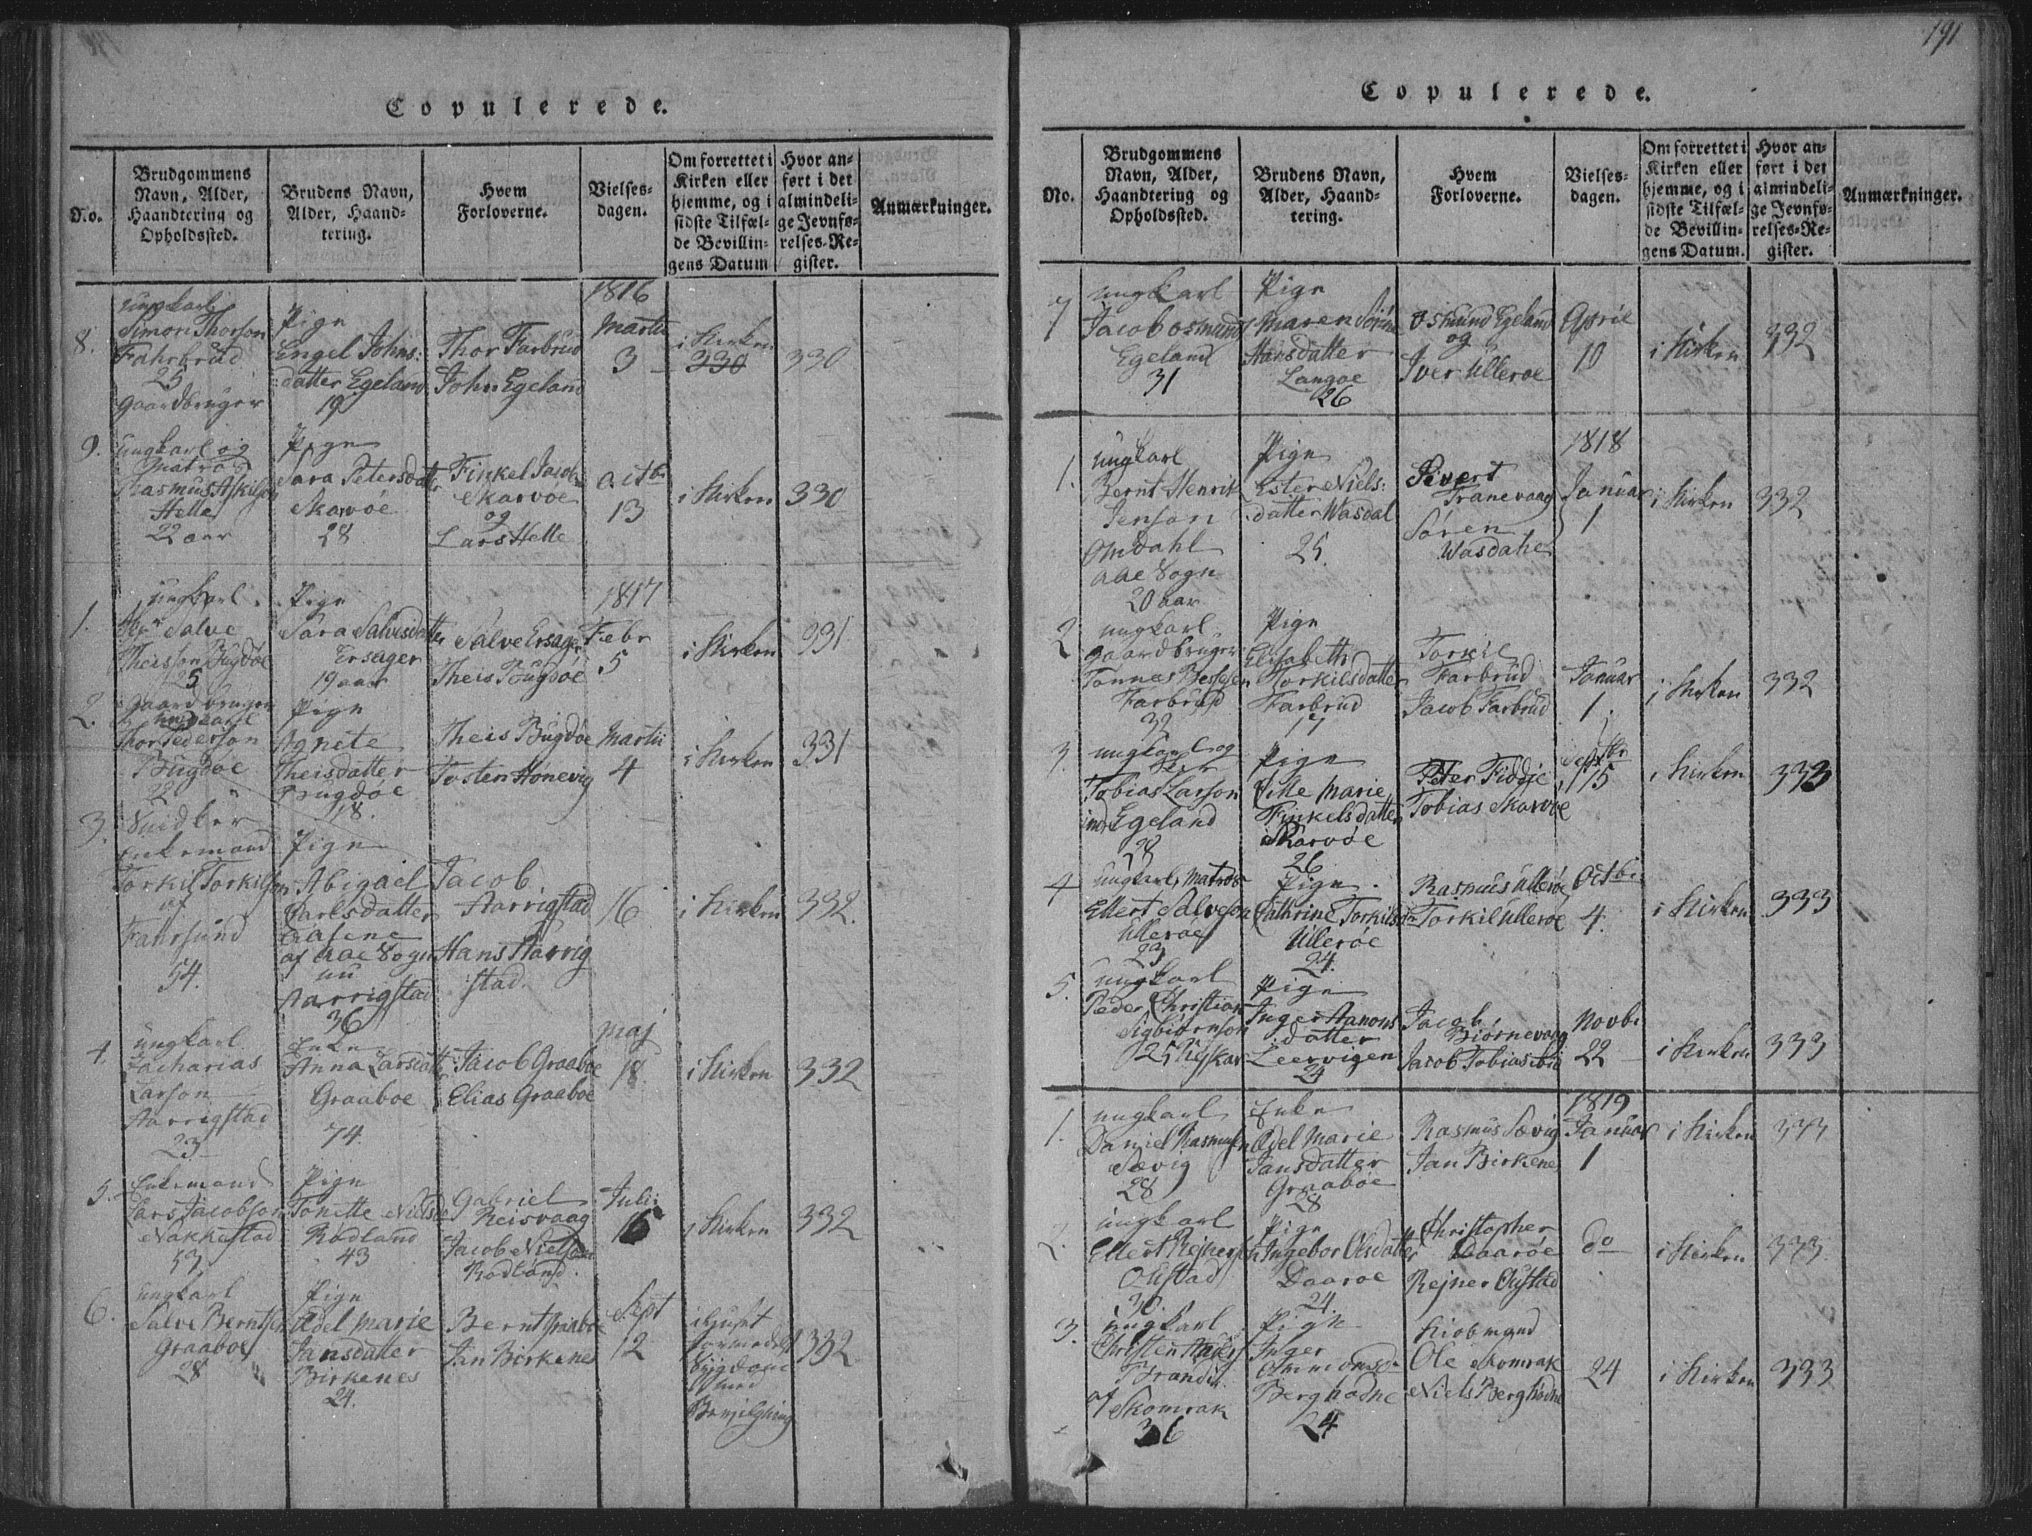 191
Copulerede.
No.
Brudgommens Navn, Alder, Haandtering og Opholdssted.
Brudens Navn, Alder, Haandtering.
Hvem Forloverne.
Vielsesdagen.
Om forrettet i Kirken eller hjemme, og i sidste Tilfælde Bevillingens Datum
Hvor anført i det almindelige Jevnførelses-Register.
Anmærkninger.
8. ungkarl Simon Thorson Fahrbrud 25 Gaardbruger
Pige Engel Johnsdatter Egeland 19
Thor Farbrud John Egeland
1816 Martii 3
i Kirken 330
330
9. ungkarl og Matros Rasmus Askilson Helle 22 aar
Pige Sara Petersdatter Skarvøe 28
Finkel Jacobs Skarvoe og Lars Helle
octbr 13
i Kirken
330
1. ungkarl Salve Theisson Bugdøe 25
Pige Sara Salvesdatter Ersager 19 aar
Salve Ersager Theis Bugdøe
1817 Febr 5
i Kirken
331
2. Gaardbruger ungkarl Thor Pederson Bugdøe 22
Pige Agnete Theisdatter Bugdøe 18.
Theis Bugdøe Tosten Hønevig
Martii 4
i Kirken
331
3. Snidker Enkemand Torkil Torkilson af Fahrsund 54.
Pige Abigael Carlsdatter Aasene af Aae Sogn nu Aarrigstad 36
Jacob Aarrigstad Hans Aarrigstad.
16
i Kirken
332.
4. ungkarl Zacharias Larson Aarrigstad 23
Enke Anna Larsdatter Graaboe 74.
Jacob Graaboe Elias Graaboe
maj 18
i Kirken
332
5. Enkemand Lars Jacobson Nakkestad 53
Pige Tonette Nielsd Rødland 43
Gabriel Reisvaag Jacob Nielson Rodland.
Juli 16
i Kirken
332
6. ungkarl Salve Berntsen Graaboe 28
Pige Adel Marie Jansdatter Birkenes 24.
Bernt Graaboe Jan Birkenes
Sept 12
i Huset formedelst Sygdom med
332
Copulerede.
No.
Brudgommens Navn, Alder, Haandtering og Opholdssted.
Brudens Navn, Alder, Haandtering.
Hvem Forloverne.
Vielsesdagen.
Om forrettet i Kirken eller hjemme, og i sidste Tilfælde Bevillingens Datum.
Hvor anført i det almindelige Jevnførelses-Register.
Anmærkninger.
7 ungkarl Jacob Osmunds Egeland 31
Pige Maren Sørine Hansdatter Langoe 26
Osmund Egeland og Iver Ulleroe
April 10
i Kirken
332
1. ungkarl Bernt Henrik Jenson Omdahl Aae Sogn 20 aar
Pige Ester Nielsdatter Wasdal 25.
Sivert Tranevaag Søren Wasdahl
1818 Januar 1
i Kirken
332
2 ungkarl Gaardbruger Tønnes Farbrud 32
Pige Elisabeth Torkilsdatter Farbrud 17
Torkil Farbrud Jacob Farbrud
Januar 1.
i Kirken
332
3. ungkarl og Tobias Larson Egeland 28
Pige Marie Finkelsdatter Skarvøe 26
Peter Fidje Tobias Skarvøe
Septbr 15
i Kirken
333
4 ungkarl, Matros Ellert Salveson Ullerøe 23
Pige Cathrine Torkilsd Ullerøe 24.
Rasmus Ullerøe Torkil Ullerøe
Octbr 4.
i Kirken
333
5. ungkarl Peder Christian Sigbiørnson 25
Pige Inger Aanonsdatter Leervigen 24
Jacob Biørnevaag Jacob Tobias ibid
Novbr 22
i Kirken
333
1. ungkarl Daniel Rasmusen Sævig 28
Enke Adel Marie Jansdatter Graabøe 28
Rasmus Sævig Jan Birkenes
1819 Januar 1
i Kirken
333
2. ungkarl Ellert Rejners Oustad 30.
Pige Ingebor Olsdatter Daaroe 24.
Christopher Daarøe Rejner Oustad
do
i Kirken
333
3. ungkarl Christen Brandt af Skomrak 36
Pige Inger Berghodne 24
Kiobmand Ole Skomrak Niels Berghødne
24
i Kirken
333